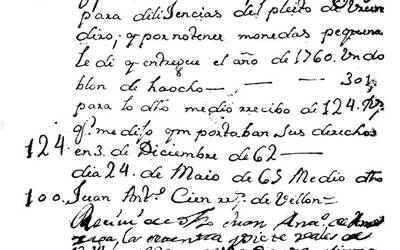 para diliſencias del pleito de
diro; y por notener monedas pequena
le di y entregue el año de 1760. Vn do
blon de haocho — — — 301,
para lo dho medio rrecibo de 124. rs
q.e me dijo ym portaban sus derechos
124. en 3. de Diciembre de 62 —
dia 24. de Maio de 63 Medio dho
100. Juan Ant.o Cien rrs. de Vellon
Recivi de dho Juan Anto. de